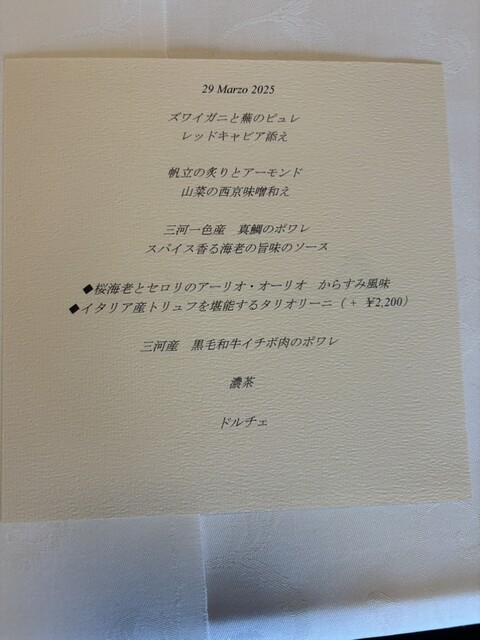 29 Marzo 2025
ズワイガニと蕪のピュレ
レッドキャビア添え
帆立の炙りとアーモンド
山菜の西京味噌和え
三河一色産　真鯛のポワレ
スパイス香る海老の旨味のソース
◆桜海老とセロリのアーリオ・オーリオ　からすみ風味
◆イタリア産トリュフを堪能するタリオリーニ（+ ¥2,200）
三河産　黒毛和牛イチボ肉のポワレ
濃茶
ドルチェ